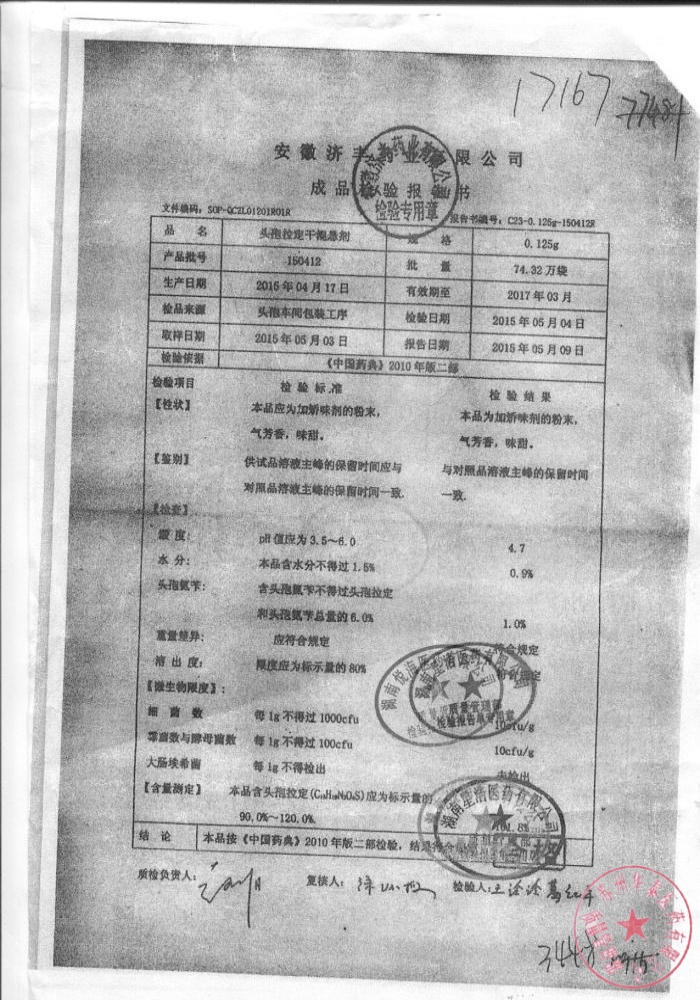 17167
77484
安徽济丰药业有限公司
成品检验报告书
检验专用章
文件编码：SOP-QC2L01201R01R 报告书编号：C23-0.125g-150412R
品 名 头孢拉定干混悬剂 规 格 0.125g
产品批号 150412 批 量 74.32 万袋
生产日期 2015 年 04 月 17 日 有效期至 2017 年 03 月
检品来源 头孢车间包装工序 检验日期 2015 年 05 月 04 日
取样日期 2015 年 05 月 03 日 报告日期 2015 年 05 月 09 日
检验依据 《中国药典》2010 年版二部
检验项目 检 验 标 准 检 验 结 果
【性状】 本品应为加矫味剂的粉末， 本品为加矫味剂的粉末，
气芳香，味甜。 气芳香，味甜。
【鉴别】 供试品溶液主峰的保留时间应与 与对照品溶液主峰的保留时间
对照品溶液主峰的保留时间一致. 一致.
【检查】
酸 度： pH 值应为 3.5～6.0 4.7
水 分： 本品含水分不得过 1.5% 0.9%
头孢氨苄： 含头孢氨苄不得过头孢拉定
和头孢氨苄总量的 6.0% 1.0%
重量差异： 应符合规定 符合规定
溶 出 度： 限度应为标示量的 80% 符合规定
【微生物限度】：
细 菌 数 每 1g 不得过 1000cfu 10cfu/g
霉菌数与酵母菌数 每 1g 不得过 100cfu 10cfu/g
大肠埃希菌 每 1g 不得检出 未检出
【含量测定】 本品含头孢拉定 应为标示量的
90.0%～120.0% 101.8%
质量管理部
检验报告单专用章
湖南星浩医药有限公司
结 论 本品按《中国药典》2010 年版二部检验，结果符合
质检负责人： 复核人： 检验人：